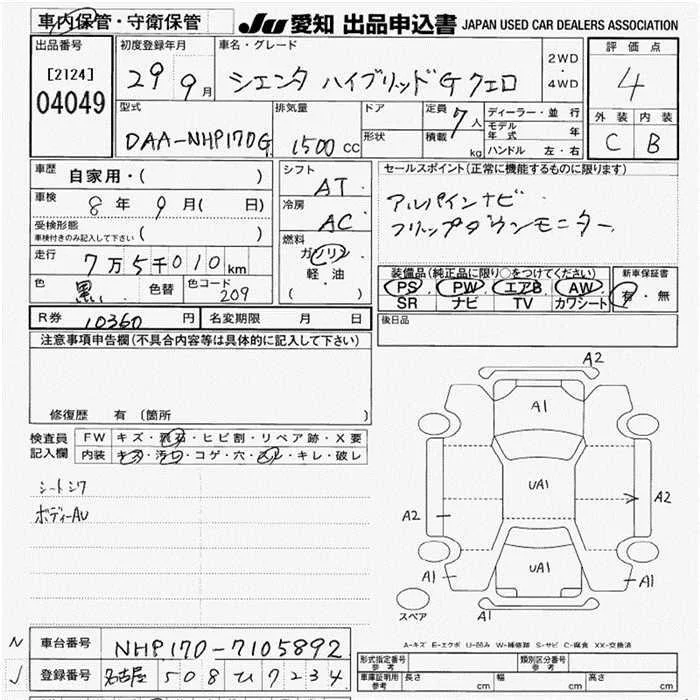 車内保管・守衛保管
JU 愛知 出品申込書 JAPAN USED CAR DEALERS ASSOCIATION
出品番号 [2124] 04049
初度登録年月 29 9月
車名・グレード シエンタ ハイブリッドG クエロ
2WD・4WD
評価点 4
型式 DAA-NHP170G
排気量 1500 CC
ドア
形状
定員 7人
積載 kg
ディーラー・並行
モデル年式 年
ハンドル 左・右
外装 C
内装 B
車歴 自家用・( )
車検 8年 9月( 日)
受検形態 ( )
車検付きのみ記入して下さい
走行 7万5千010km
色 黒い 色替 色コード 209
シフト AT
冷房 AC
燃料 ガソリン
軽・油
( )
セールスポイント(正常に機能するものに限ります)
アルパインナビ
フリップダウンモニター
装備品(純正品に限り○をつけてください)
PS PW エアB AW
SR ナビ TV カワシート
新車保証書 有・無
R券 10360 円 名変期限 月 日
後日品
注意事項申告欄(不具合内容等は具体的に記入して下さい)
修復歴 有 〔箇所 〕
検査員記入欄
FW キズ・飛石・ヒビ割・リペア跡・X要
内装 キズ・汚れ・コゲ・穴・スレ・キレ・破レ
シートシワ
ボディーAU
A2
A1
UA1
A2
A2
UA1
A1
A1
A1
スペア
A-キズ E-エクボ U-凹み W-補修跡 S-サビ C-腐食 XX-交換済
N 車台番号 NHP170-7105892
J 登録番号 名古屋 508 ひ 7234
形式指定番号 参考
類別区分番号 参考
車庫証明用 参考 長さ cm 幅 cm 高さ cm